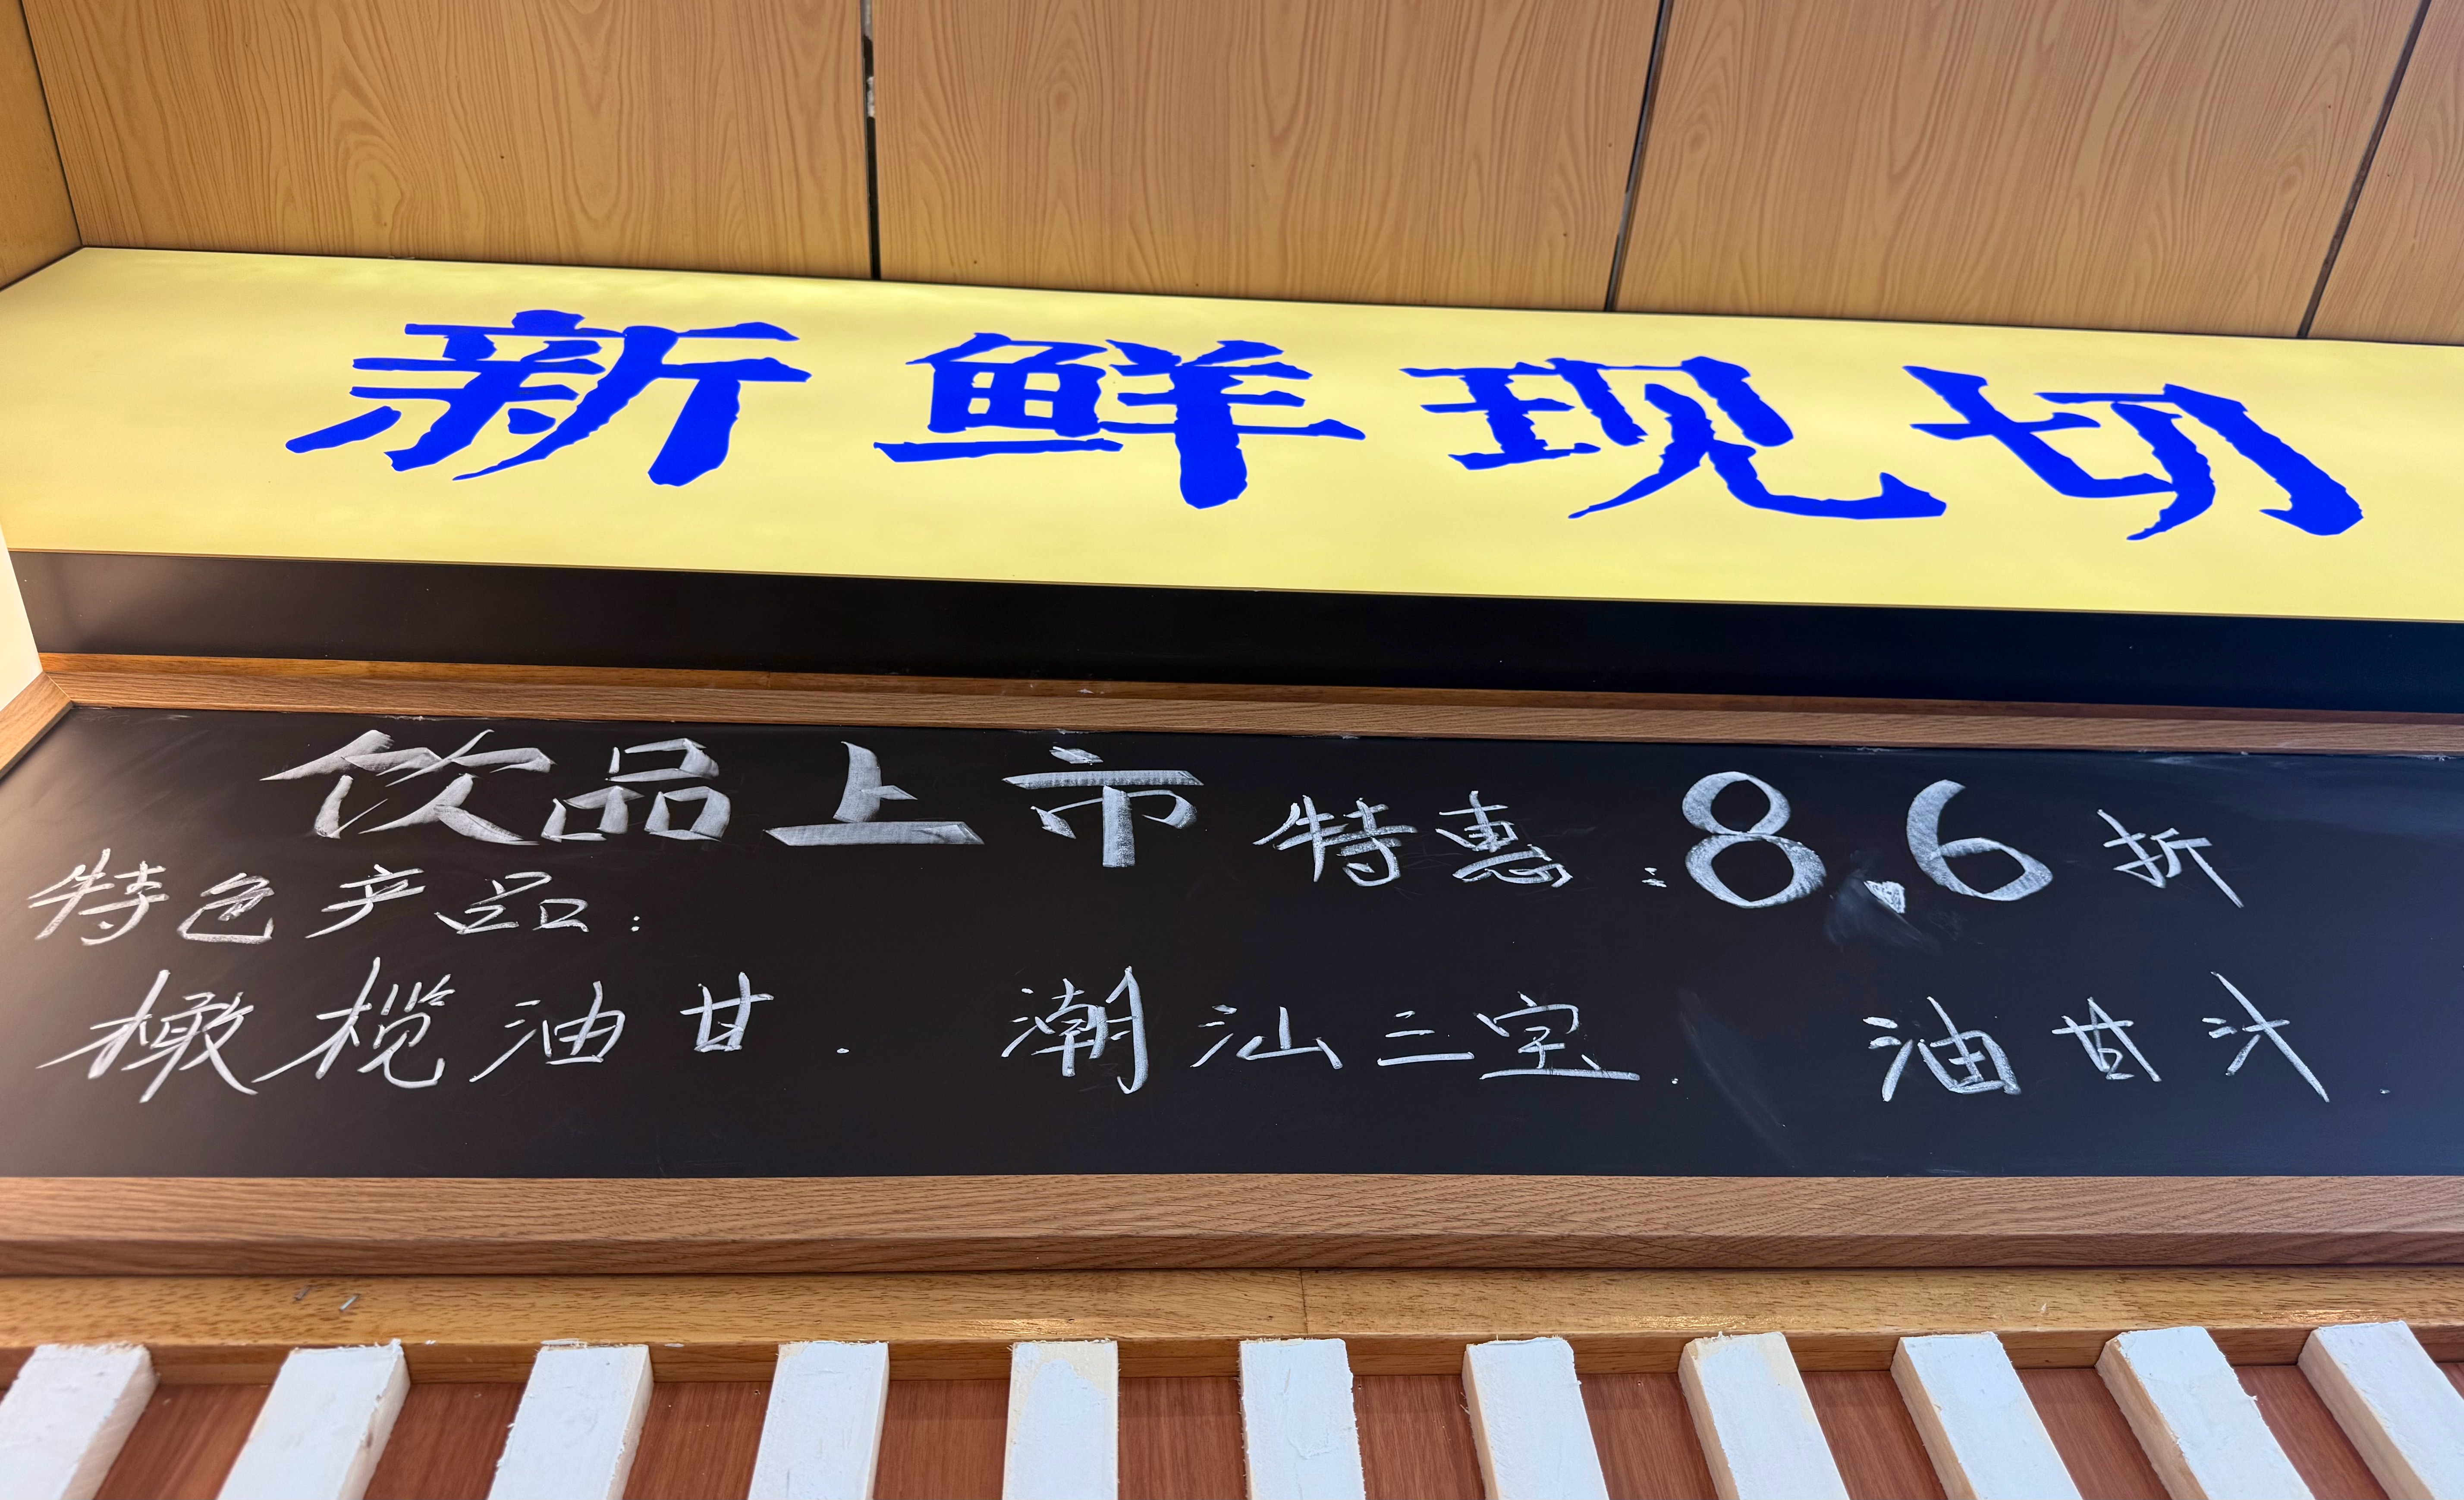 新鲜现切
饮品上市 特惠:8.6折
特色产品:
橄榄油甘. 潮汕三宝. 油甘汁.